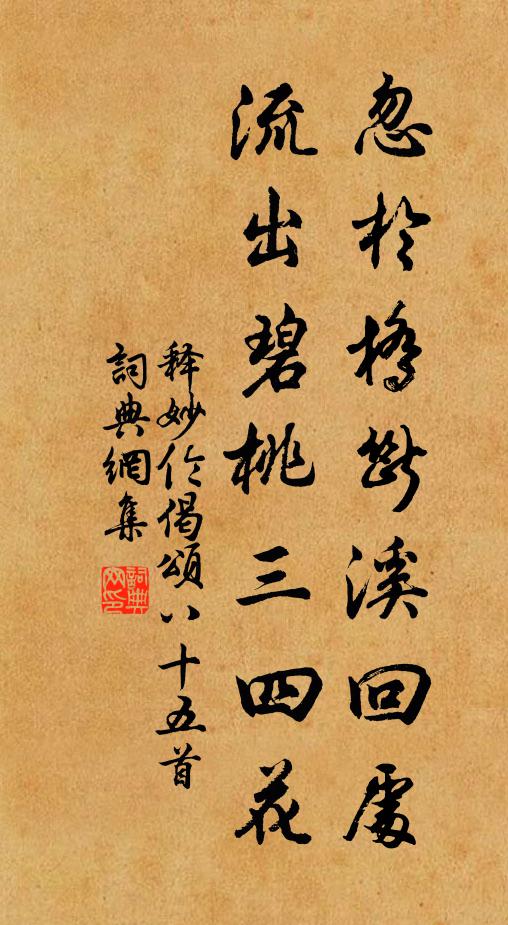 忽於橋斷溪回處
流出碧桃三四花
释妙伦偈頌八十五首
詞典網集
詞典网印